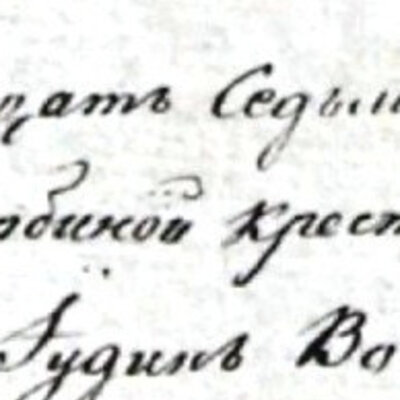 цать Седьм
рбиной крест
Гудинъ Во